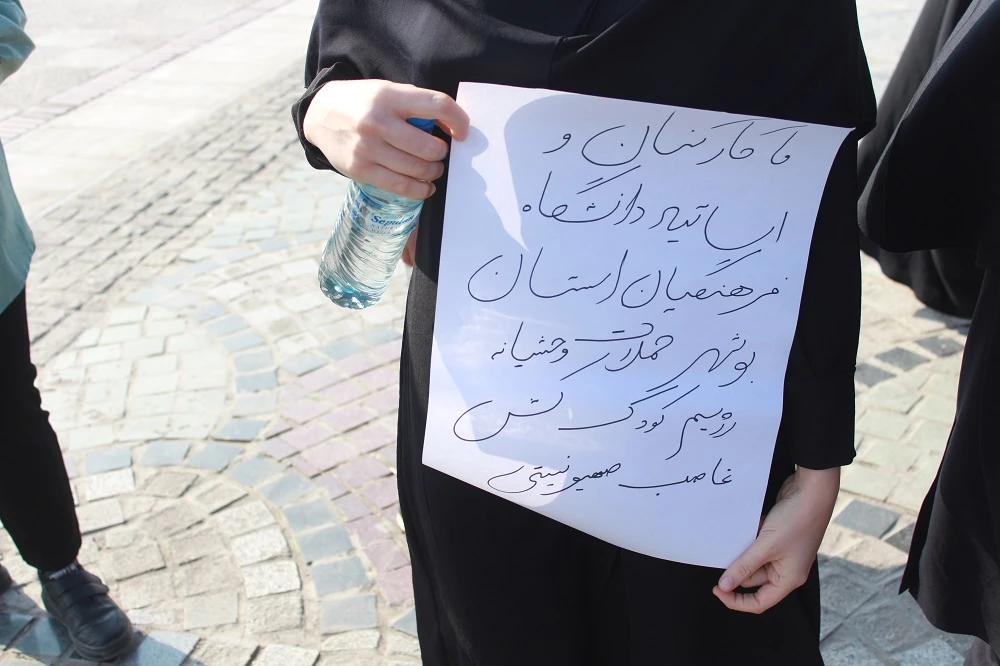 ما کارکنان و
اساتید دانشگاه
فرهنگیان استان
بوشهر حملات وحشیانه
رژیم کودک کش
غاصب صهیونیستی
Sepid